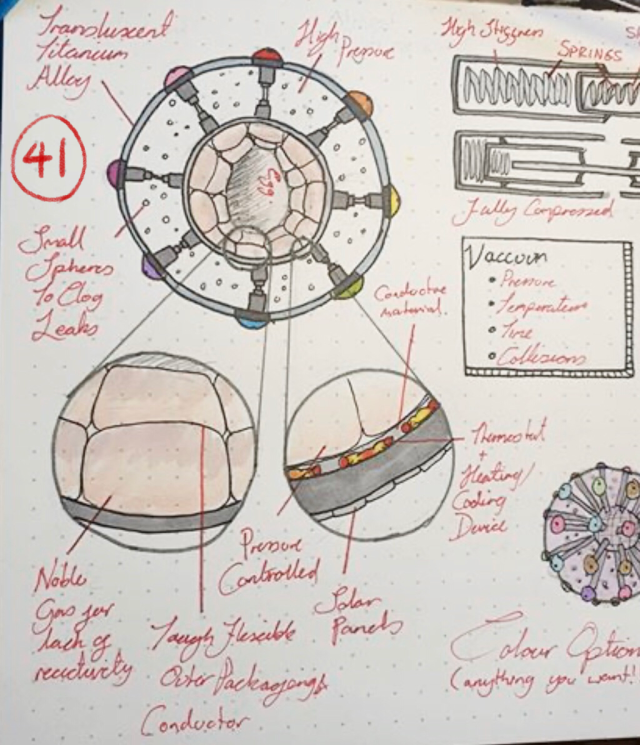 Transluscent
Titanium
Alloy
High
Pressure
High Stiffness
SPRINGS
41
Egg
Fully Compressed
Small
Spheres
To Clog
Leaks
Vaccum
• Pressure
• Temperature
• Time
• Collisions
Conductive
material.
Thermostat
+
Heating/
Cooling
Device
Pressure
Controlled
Solar
Panels
Noble
Gas for
lack of
reactivity
Tough Flexible
Outer Packaging &
Conductor
Colour Option
(anything you want!